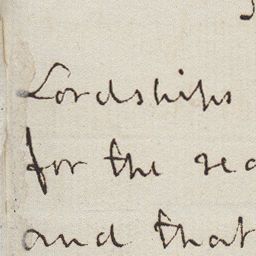 Lordships
for the
and that